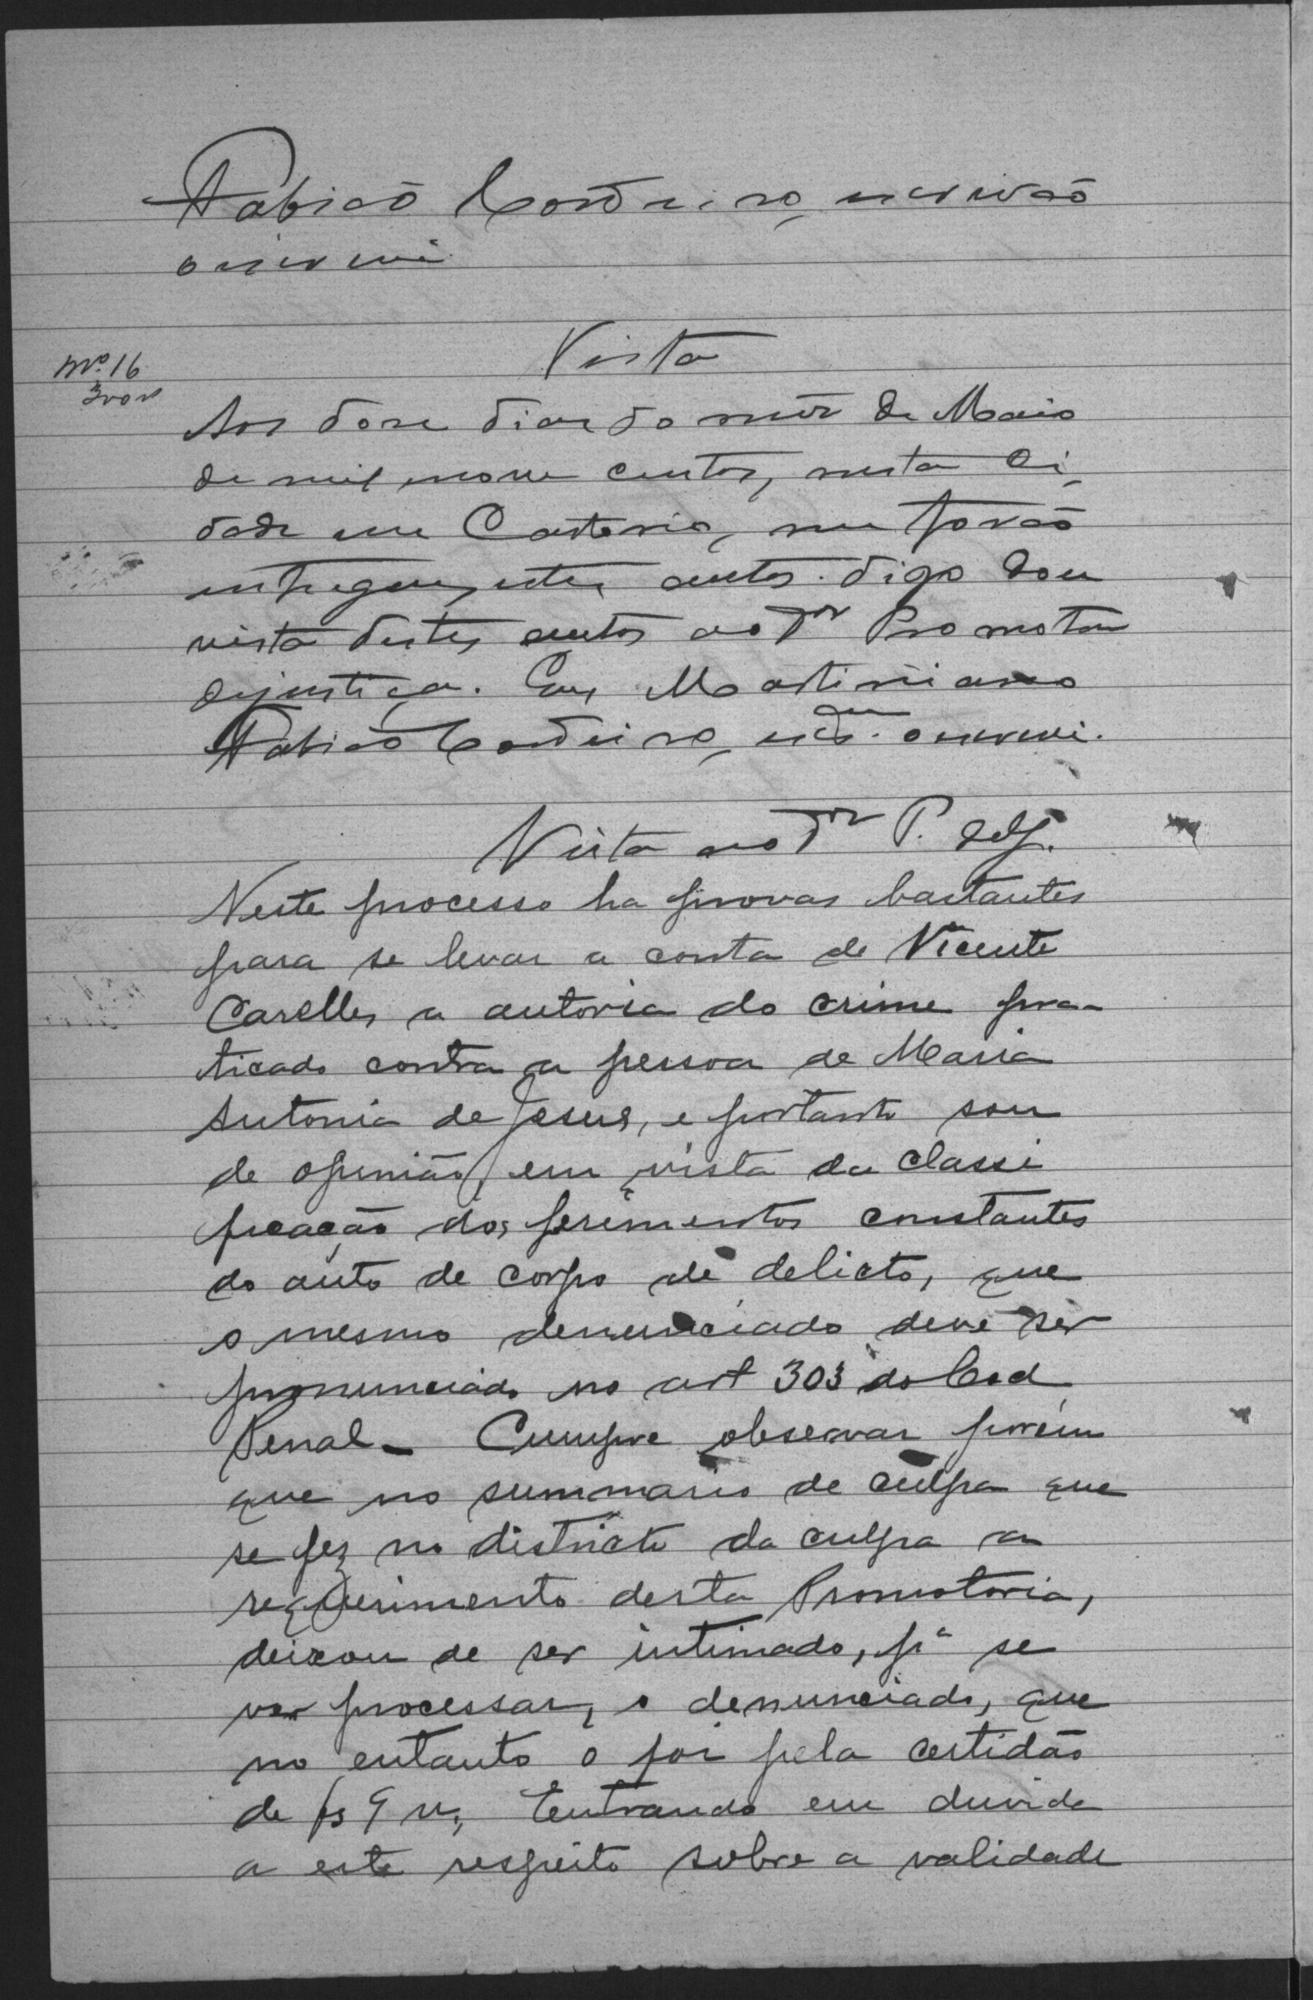 Fabião Cordeiro, escrivão
o escrevi
Vista
Nº 16
Aos doze dias do mez de Maio
de mil nove centos, nesta Ci
dade em Cartorio, me forão
entregues estes autos. digo dou
vista destes autos ao Dr Promotor
dejustiça. Eu, Martiniano
Fabião Cordeiro, escrm. o escrevi.
Vista ao Dr P. Adj.
Neste processo ha provas bastantes
para se levar a conta de Vicente
Carelles a autoria do crime pra-
ticado contra a pessoa de Maria
Antonia de Jesus, e portanto sou
de opinião, em vista da classi
ficação dos ferimentos constantes
do auto de corpo de delicto, que
o mesmo denunciado deve ser
pronunciado no art 303 do Cod
Penal_ Cumpre observar porém
que no summario de culpa que
se fez no districto da culpa a
requerimento desta Promotoria,
deixou de ser intimado, pa se
ver processar, o denunciado, que
no entanto o foi pela certidão
de fs 9 v, Entrando em duvida
a este respeito sobre a validade